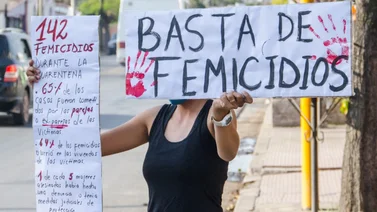 142
FEMICIDIOS
DURANTE LA
CUARENTENA
65% de los
casos fueron cometidos
por las parejas
o ex-parejas de
las víctimas
69% de los femicidios
en las viviendas
de las víctimas
1 de cada 5 mujeres
había
denuncia o tenía
medidas judiciales
de
BASTA DE
FEMICIDIOS